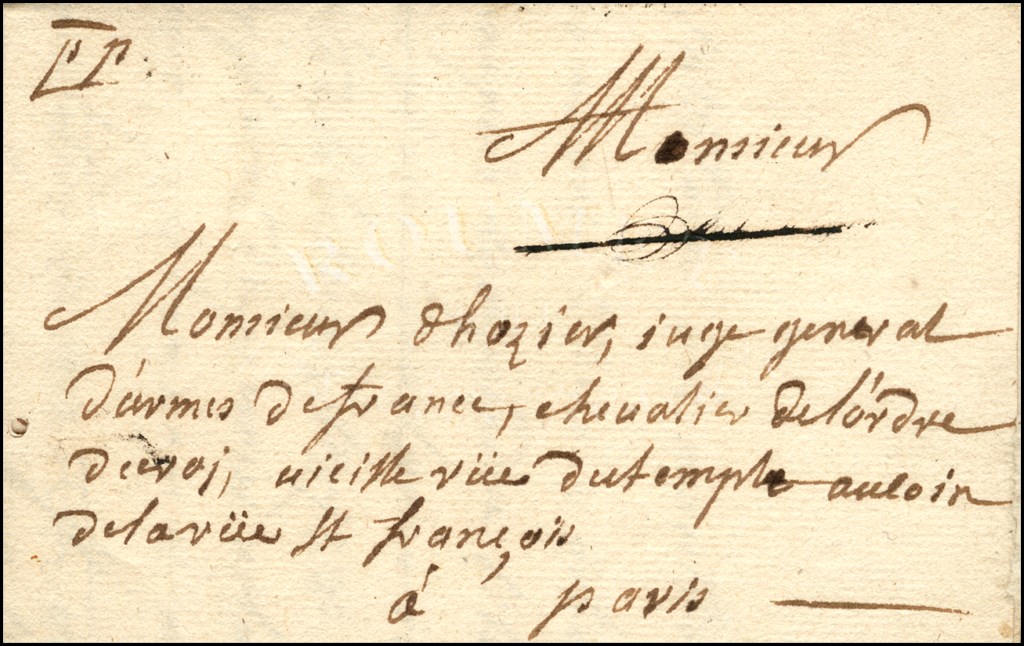 PP.
Monsieur
Monsieur dhozier, iuge general
d'armes de france, cheualier de l'ordre
du roi, uieille rüe du temple au coin
de la rüe st françois
à paris